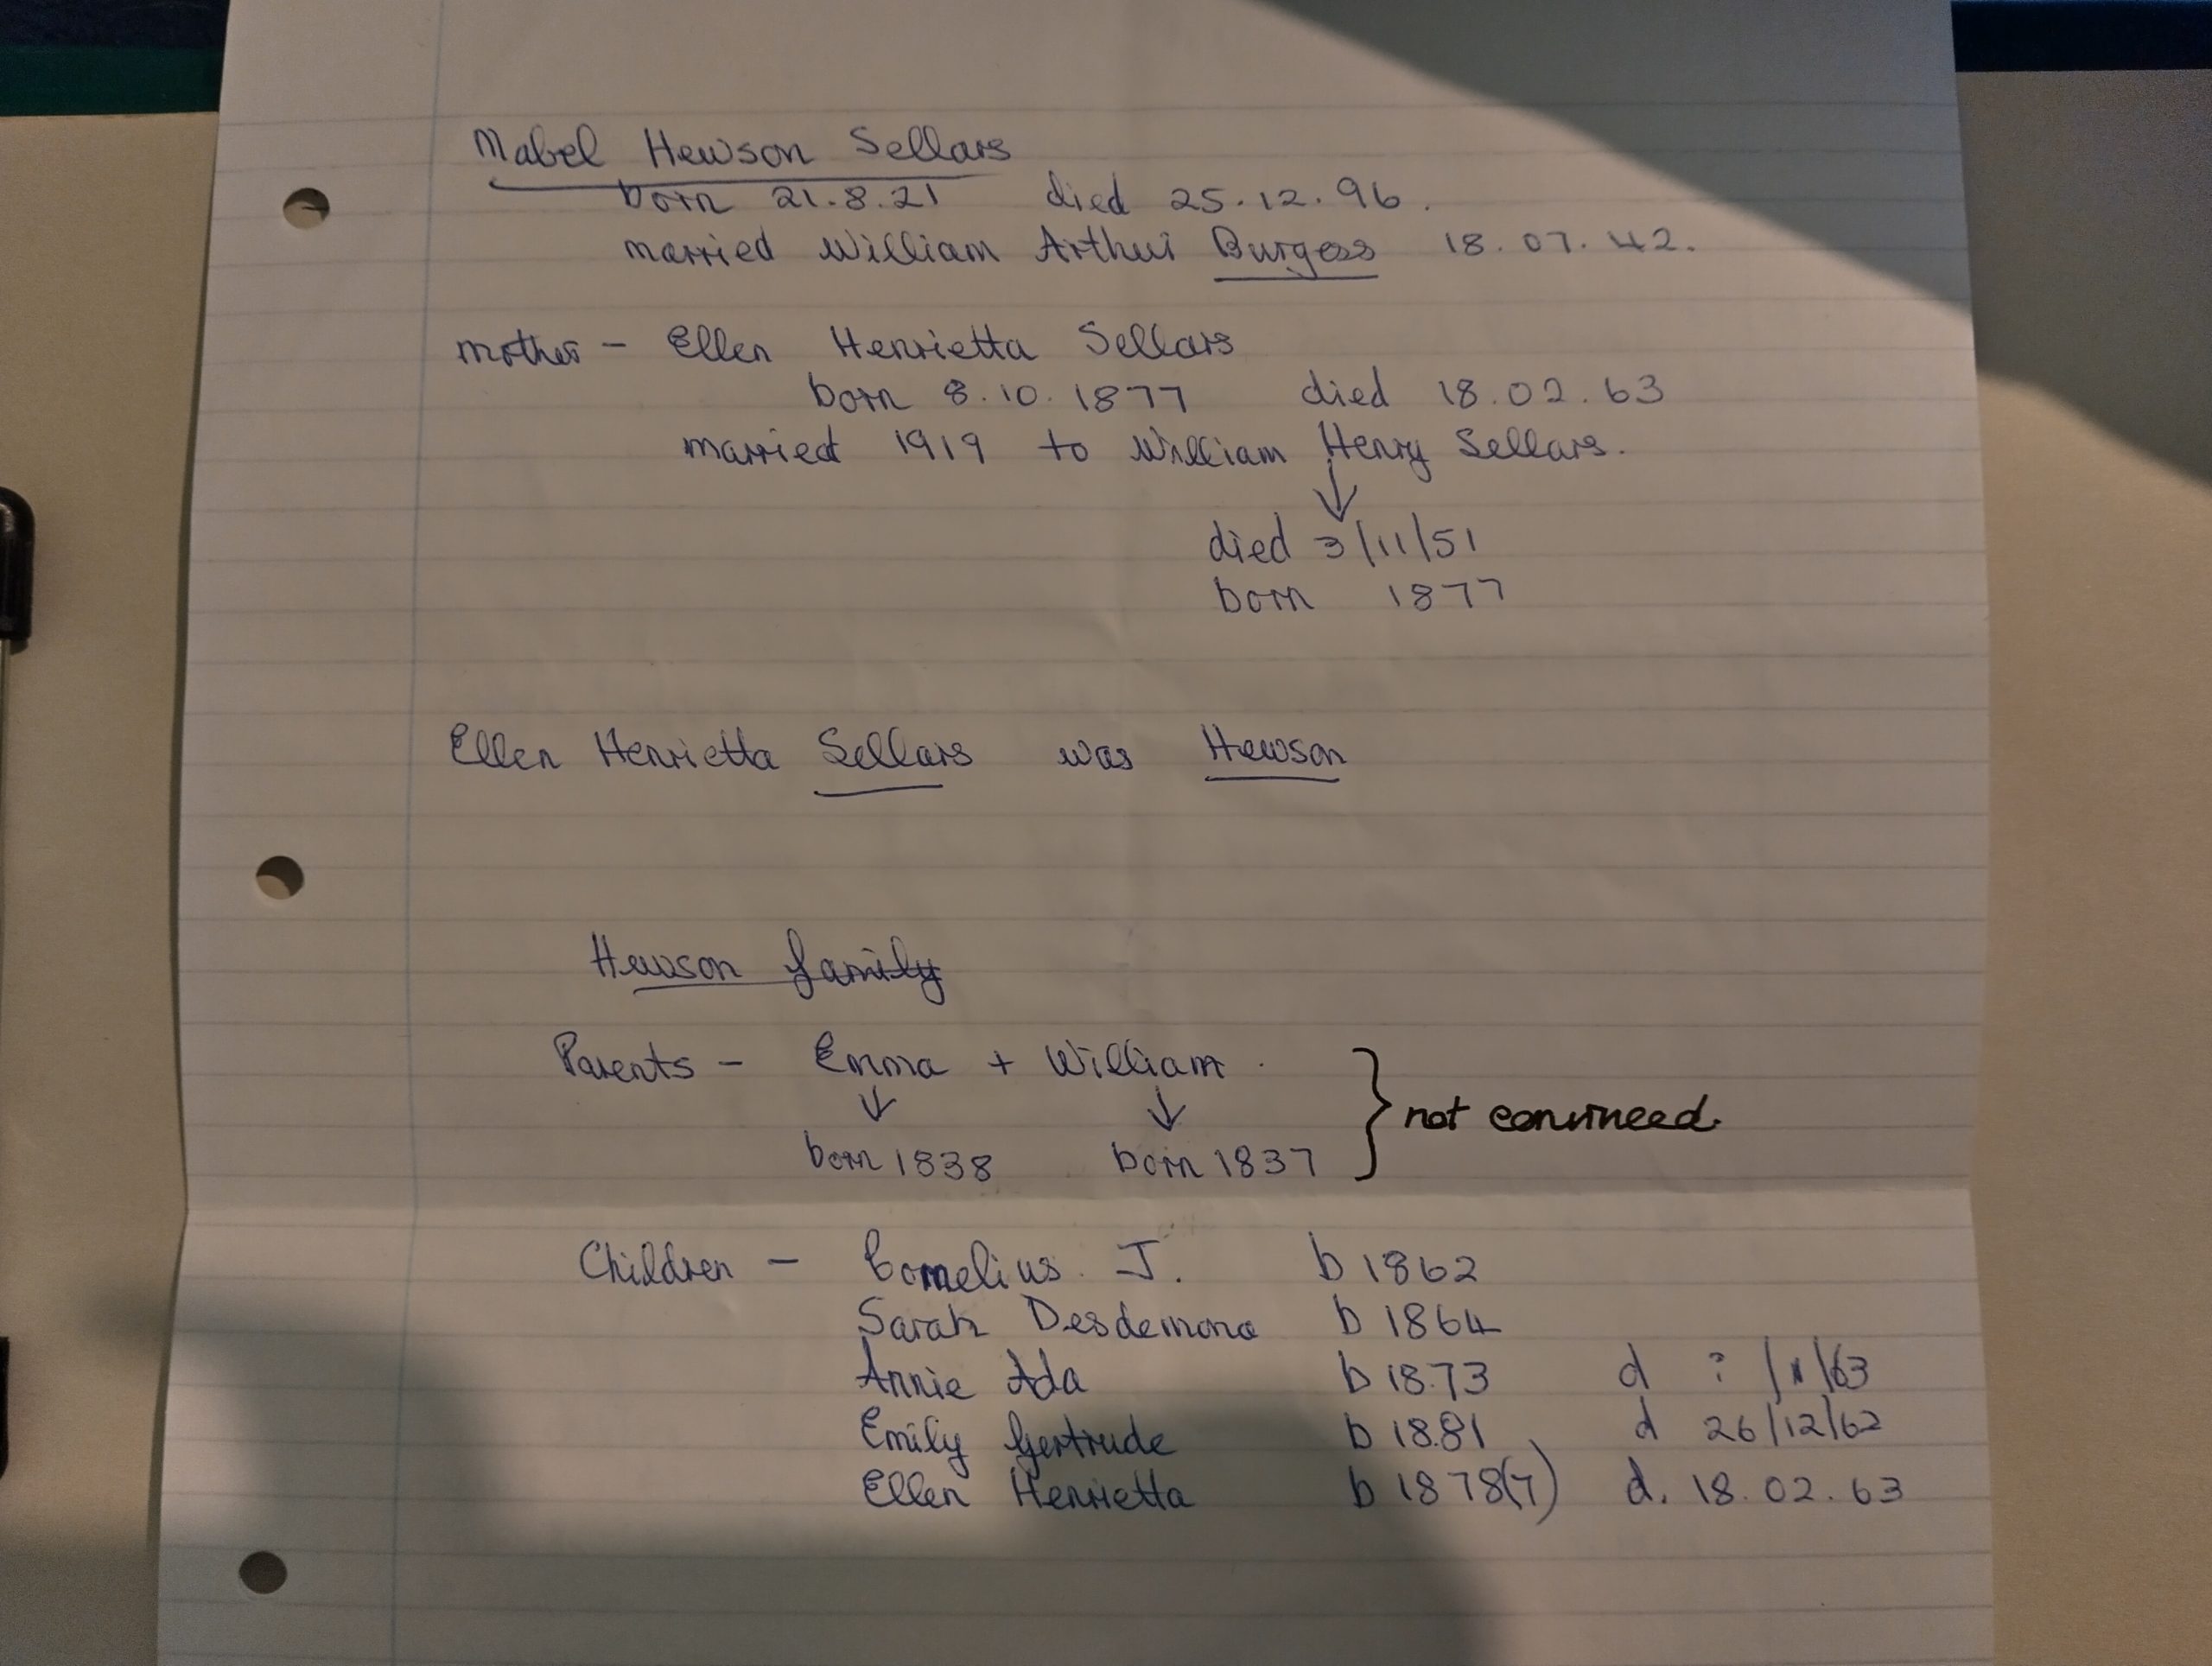 Mabel Hewson Sellars
born 21.8.21 died 25.12.96.
married William Arthur Burgess 18.07.42.
mother - Ellen Henrietta Sellars
born 8.10.1877 died 18.02.63
married 1919 to William Henry Sellars.
died 3/11/51
born 1877
Ellen Henrietta Sellars was Hewson
Hewson family
Parents - Emma + William
born 1838 born 1837
} not convinced.
Children - Cornelius J. b 1862
Sarah Desdemona b 1864
Annie Ada b 1873 d ? / /63
Emily Gertrude b 1881 d 26/12/62
Ellen Henrietta b 1878(7) d. 18.02.63